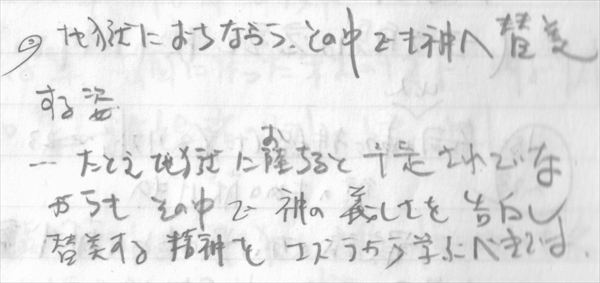 地獄におちながらう、その中でも神へ賛美
する姿
一 たとえ地獄に堕ちると予定されていな
がらも その中で 神の義しさを 告白し
賛美する 精神を 学ぶべきです。